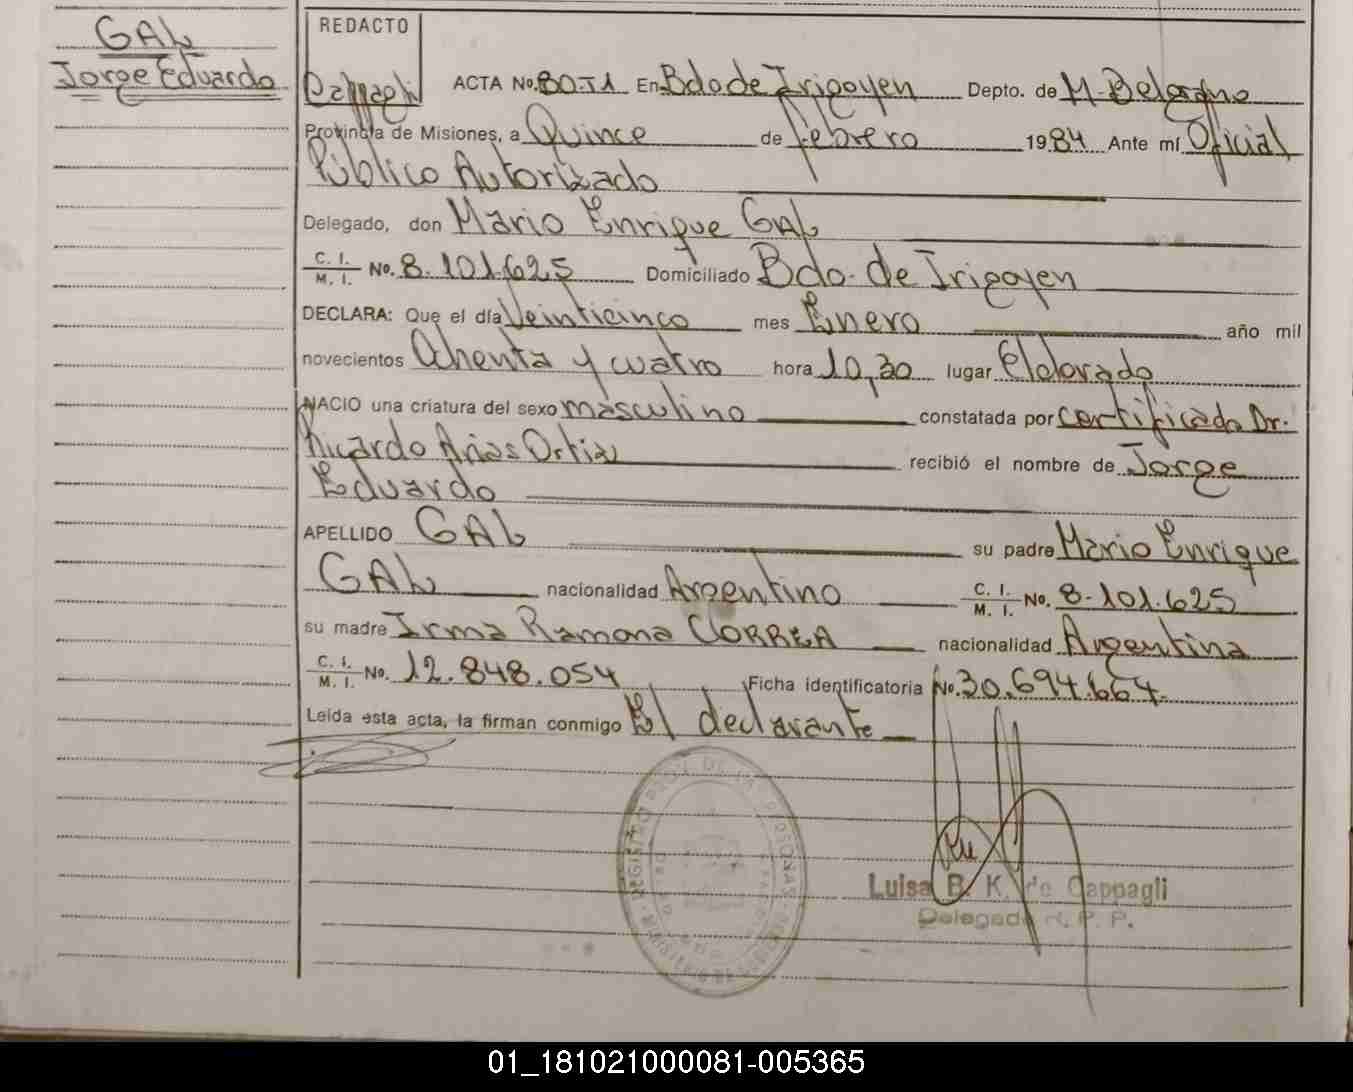 GAL
Jorge Eduardo
REDACTO
Cappagli
ACTA No. 80-T1 En Bdo de Irigoyen Depto. de M. Belgrano
Provincia de Misiones, a Quince de febrero 1984 Ante mí Oficial
Público Autorizado
Delegado, don Mario Enrique GAL
C. I.
M. I. No. 8.101.625 Domiciliado Bdo. de Irigoyen
DECLARA: Que el día Veinticinco mes Enero año mil
novecientos Ochenta y cuatro hora 10,30 lugar Eldorado
NACIO una criatura del sexo masculino constatada por certificado Dr.
Ricardo Arias Ortiz recibió el nombre de Jorge
Eduardo
APELLIDO GAL su padre Mario Enrique
GAL nacionalidad Argentino C. I.
M. I. No. 8.101.625
su madre Irma Ramona CORREA nacionalidad Argentina
C. I.
M. I. No. 12.848.054 Ficha identificatoria No. 30.694.664.
Leida esta acta, la firman conmigo El declarante
Luisa B. K. de Cappagli
Delegada R. P. P.
01_181021000081-005365